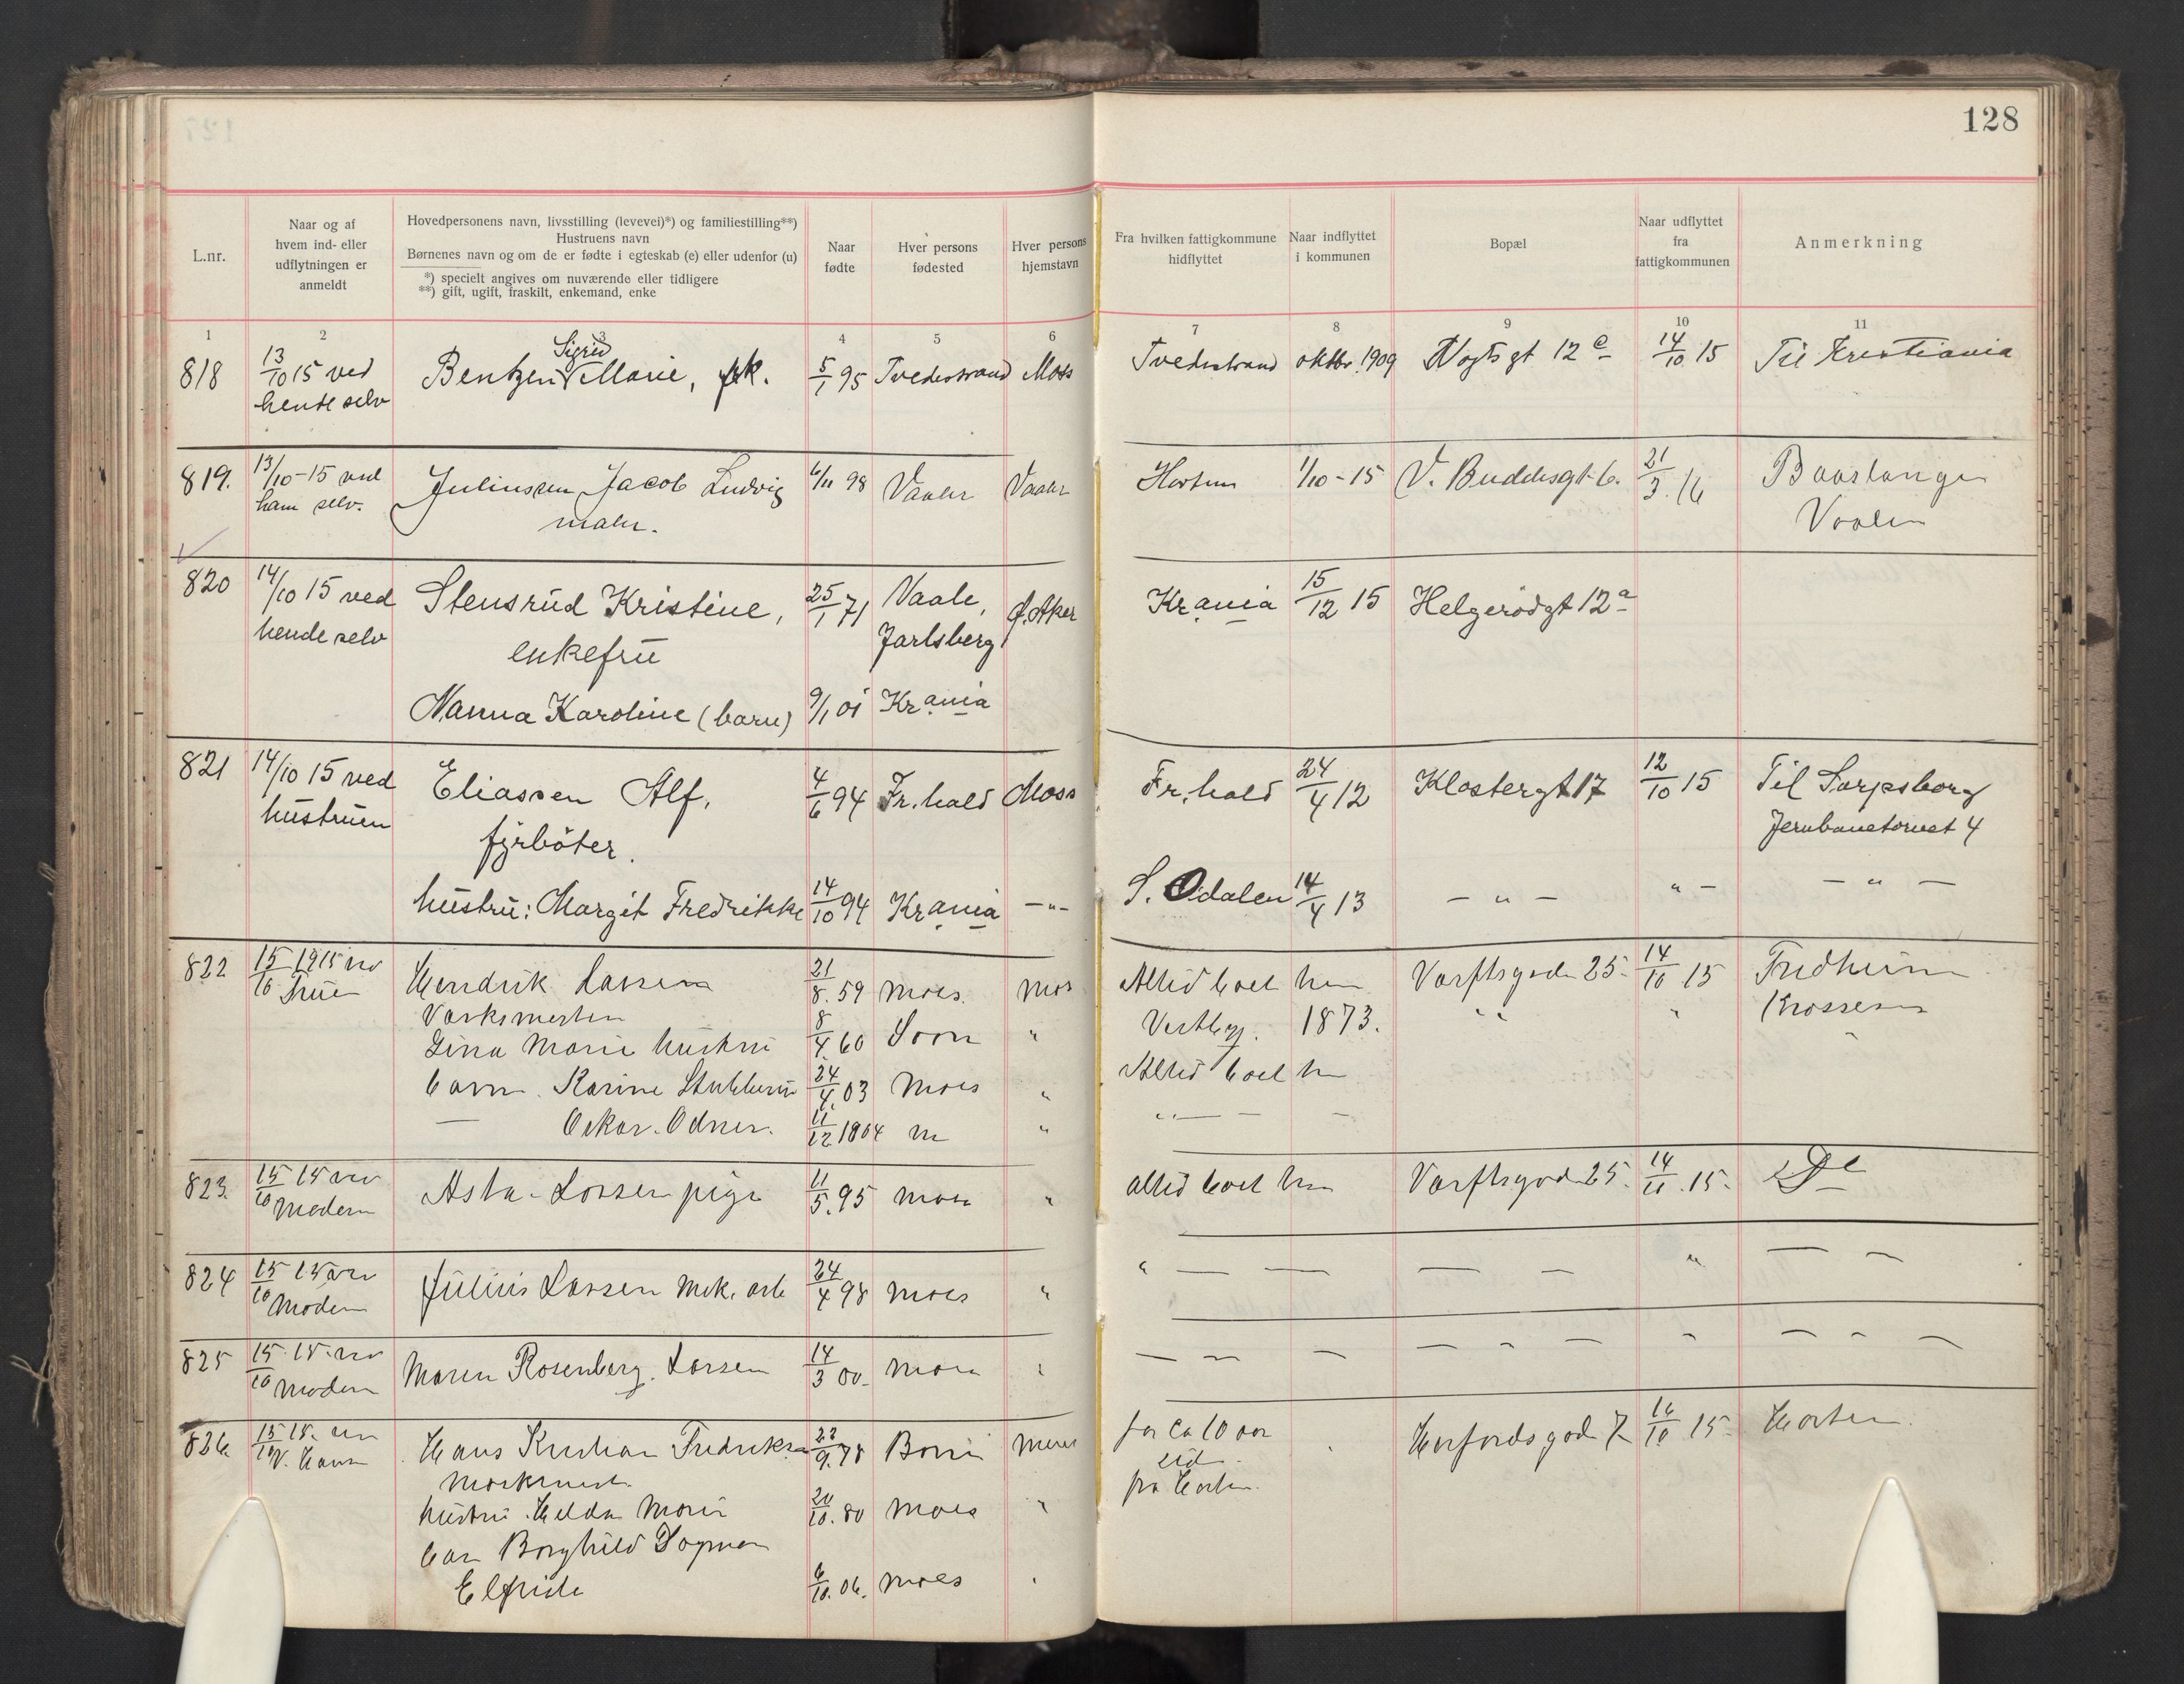 128
L.nr.
Naar og af
hvem ind- eller
udflytningen er
anmeldt
Hovedpersonens navn, livsstilling (levevei)*) og familiestilling**)
Hustruens navn
Børnenes navn og om de er fødte i egteskab (e) eller udenfor (u)
*) specielt angives om nuværende eller tidligere
**) gift, ugift, fraskilt, enkemand, enke
Naar
fødte
Hver persons
fødested
Hver persons
hjemstavn
Fra hvilken fattigkommune
hidflyttet
Naar indflyttet
i kommunen
Bopæl
Naar udflyttet
fra
fattigkommunen
Anmerkning
1 2 3 4 5 6 7 8 9 10 11
Sigrid
818 13/10 15 ved Bentzen Marie, 5/1 95 Tvedestrand Moss Tvedestrand oktbr. 1909 Vogtsgt 12 c 14/10 15 Til Kristiania
hende selv
819. 13/10-15 ved Juliussen Jacob Ludvig 6/11 98 Vaaler Vaaler Horten 1/10-15 V. Buddesgt 6. 21/3 16
ham selv. maler. Vaaler
820 14/10 15 ved Stensrud Kristine, 25/1 71 Vaale, Ø. Aker Krania 15/12 15 Helgerødgt 12 a
hende selv enkefru Jarlsberg
Nanna Karoline (barn) 9/1 01 Krania
821 14/10 15 ved Eliassen Alf, 4/6 94 Fr.hald Moss Fr.hald 24/4 12 Klostergt 17 12/10 15 Til Sarpsborg
hustruen fyrböter. Jernbanetorvet 4
hustru: Margit Fredrikke 14/10 94 Krania -"- S. Odalen 14/4 13 - " - " - - " -
822 15/10 1915 ved Hendrik Larsen 21/8. 59 Moss. Mos Altid boet her Værftsgaden 25. 14/10 15 Fredheim
fruen Værksmester Krosser
Lina Marie hustru 8/4. 60 Soon " Vestby. 1873. " "
barn. Karine 24/4. 03 Moss " Altid boet her
— Oskar. Odner. 11/12 1904 m " " — — —
823. 15/10 15 ved Asta. Larsen pige 11/5. 95 Moss " altid boet her Værftsgaden 25. 14/10. 15. Do
Modern
824 15/10 15 ved Julius Larsen Mek. arb 24/4 98 Moss " " — — — — " — —
Modern
825 15/10 15. ved Maren Rosenberg. Larsen 14/3 00. Moss " — — — — — — " — — —
Modern
826 15/10 15. ved Hans Kristian Fredriksen 22/9. 78 Borre Moss for ca 10 aar 7 16/10 15. Horten.
H. Hansen siden
fra Horten.
hustru. Helda Marie 20/10. 80 Moss "
barn Borghild Dagmar
Elfrida 6/10. 06. Moss "